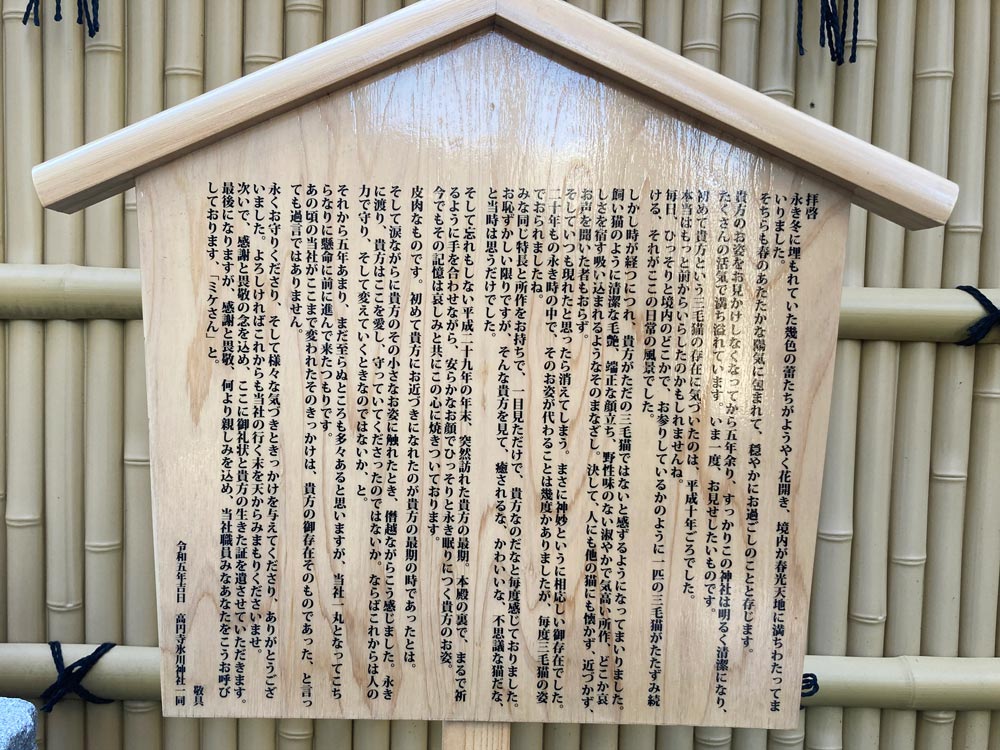 拝啓
永き冬に埋もれていた幾色の蕾たちがようやく花開き、境内が春光天地に満ちわたってま
いりました。
そちらも春のあたたかな陽気に包まれて、穏やかにお過ごしのことと存じます。
貴方のお姿をお見かけしなくなってから五年余り、すっかりこの神社は明るく清潔になり、
たくさんの活気で満ち溢れています。いま一度、お見せしたいものです。
初めて貴方という三毛猫の存在に気づいたのは、平成十年ごろでした。
本当はもっと前からいらしたのかもしれませんね。
毎日、ひっそりと境内のどこかで、お参りしているかのように一匹の三毛猫がたたずみ続
ける、それがここの日常の風景でした。
しかし時が経つにつれ、貴方がただの三毛猫ではないと感ずるようになってまいりました。
飼い猫のように清潔な毛艶、端正な顔立ち、野性味のない淑やかで気高い所作、どこか哀
しさを宿す吸い込まれるようなそのまなざし。決して、人にも他の猫にも懐かず、近づかず、
お声を聞いた者もおらず。
そしていつも現れたと思ったら消えてしまう。まさに神妙というに相応しい御存在でした。
二十年もの永き時の中で、そのお姿が代わることは幾度かありましたが、毎度三毛猫の姿
でおられましたね。
みな同じ特長と所作をお持ちで、一目見ただけで、貴方なのだなと毎度感じておりました。
お恥ずかしい限りですが、そんな貴方を見て、癒されるな、かわいいな、不思議な猫だな、
と当時は思うだけでした。
そして忘れもしない平成二十九年の年末、突然訪れた貴方の最期。本殿の裏で、まるで祈
るように手を合わせながら、安らかなお顔でひっそりと永き眠りにつく貴方のお姿。
今でもその記憶は哀しみと共にこの心に焼きついております。
皮肉なものです。初めて貴方にお近づきになれたのが貴方の最期の時であったとは。
そして涙ながらに貴方のその小さなお姿に触れたとき、僭越ながらこう感じました。永き
に渡り、貴方はここを愛し、守っていてくださったのではないか。ならばこれからは人の
力で守り、そして変えていくときなのではないか、と。
それから五年あまり、まだ至らぬところも多々あると思いますが、当社一丸となってこち
らなりに懸命に前に進んで来たつもりです。
あの頃の当社がここまで変われたそのきっかけは、貴方の御存在そのものであった、と言っ
ても過言ではありません。
永くお守りくださり、そして様々な気づきときっかけを与えてくださり、ありがとうござ
いました。よろしければこれからも当社の行く末を天からみまもりくださいませ。
次いで、感謝と畏敬の念を込め、ここに御礼状と貴方の生きた証を遺させていただきます。
最後になりますが、感謝と畏敬、何より親しみを込め、当社職員みなあなたをこう お呼び
しております、「ミケさん」と。
敬具
令和五年吉日 高円寺氷川神社一同